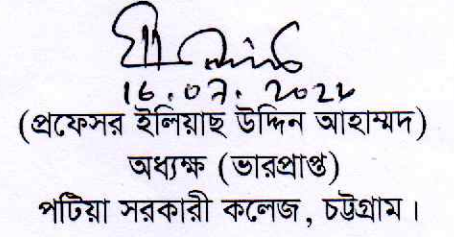 16.07.2022
(প্রফেসর ইলিয়াছ উদ্দিন আহাম্মদ)
অধ্যক্ষ (ভারপ্রাপ্ত)
পটিয়া সরকারী কলেজ, চট্টগ্রাম।